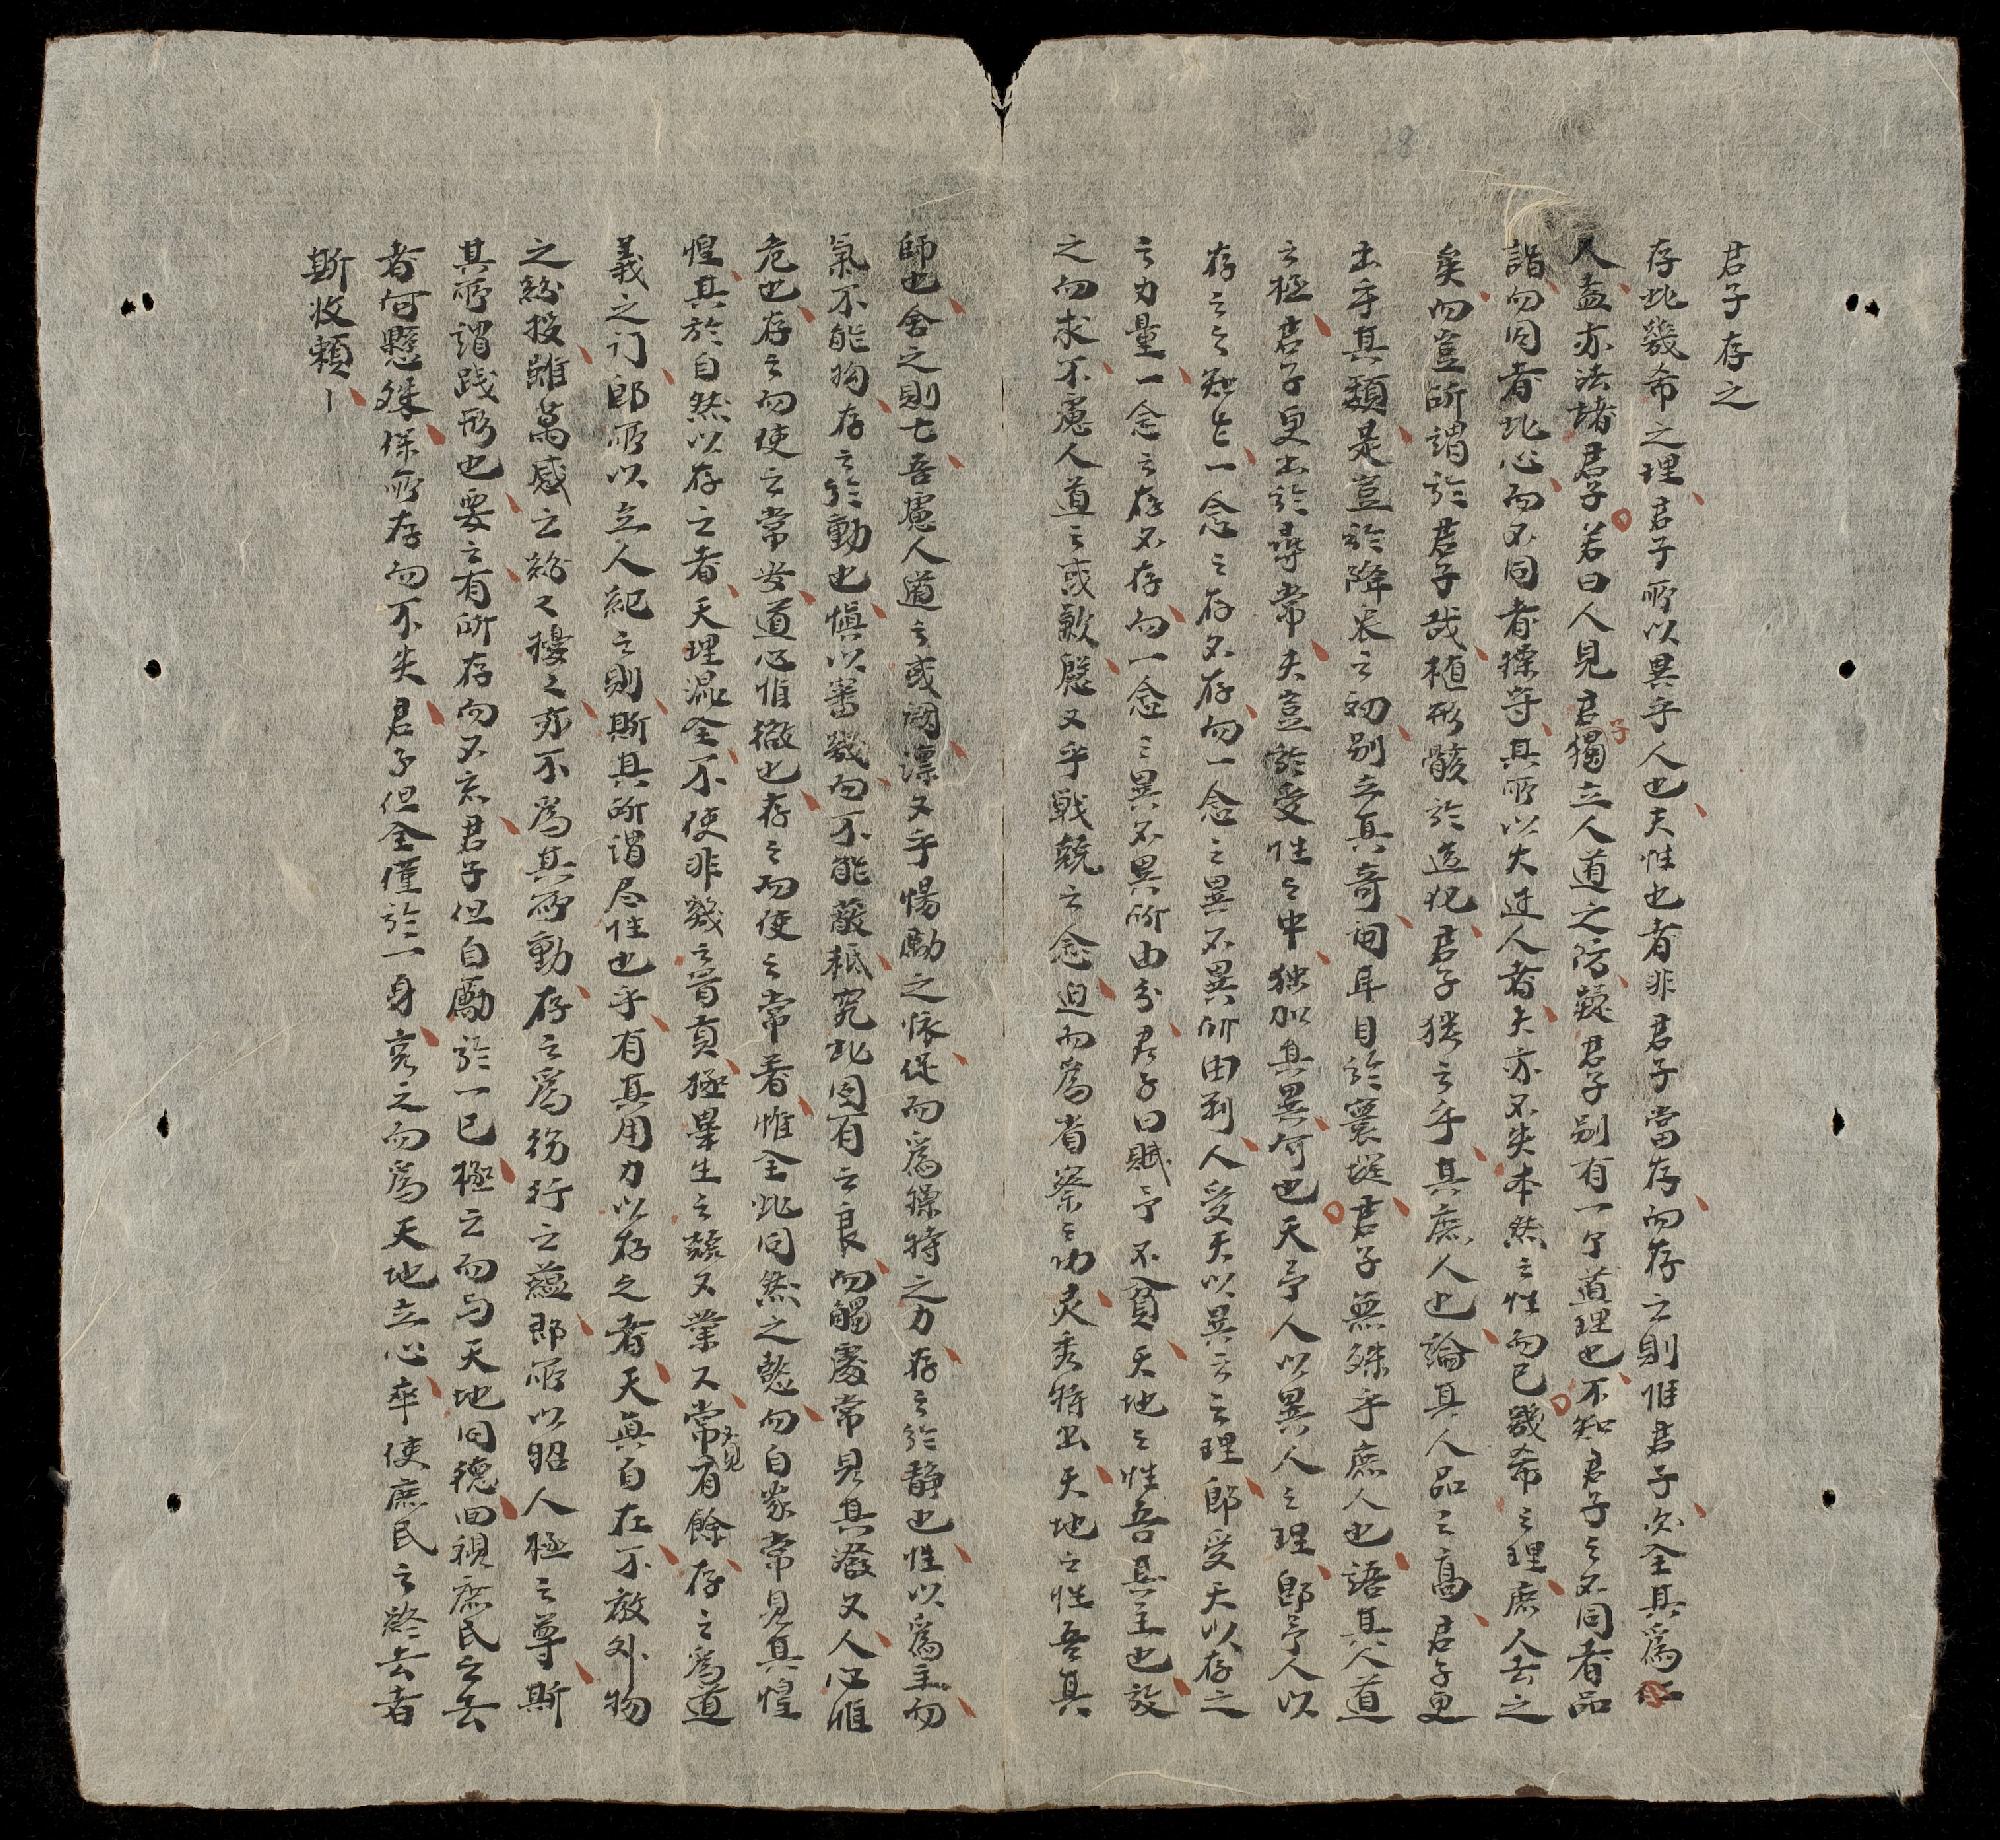 君子存之
存此幾希之理君子所以異乎人也夫性也者非君子當存而存之則惟君子必全其爲仁
人盍亦法諸君子若曰人見君子獨立人道之防疑君子别有一个道理也不知君子之不同者品
詣而同者此心而不同者操守其所以大过人者夫亦不失本然之性而已幾希之理庶人去之
矣而豈所謂於君子哉植形骸於造化君子猶之乎其庶人也論其人品之高君子更
出乎其類是豈於降衷之初别立其奇同耳目於寰墟君子無殊乎庶人也語其人道
之極君子更出於尋常夫豈於受性之中独加其異何也天予人以異人之理即予人以
存之之知乍一念之存不存而一念之異不異所由判人受天以異之之理即受天以存之
之力量一念之存不存而一念之異不異所由分君子曰賦予不貧天地之性吾具主也放
之而求不慮人道之或歉慇又乎戰兢之念迫而爲省察之功灵秀特出天地之性吾其
師也舍之則亡吾慮人道之或凋漂又乎惕勵之怀促而爲操持之力存之於静也性以爲主而
氣不能拘存之於動也慎以審幾而不能蔽祗究此固有之良而觸處常見其發又人心惟
危也存之而使之常安道心惟微也存之而使之常著惟全此同然之懿而自家常見其惶
惶其於自然以存之者天理混全不使非幾之冒貢極畢生之兢又業又常見有餘存之爲道
義之门即所以立人紀之則斯其所谓尽性也乎有其用力以存之者天真自在不敢外物
之紛投雖萬感之紛々擾々亦不爲其所動存之爲行之蕴即所以昭人極之尊斯
其所謂践形也要之有所存而不忘君子但自勵於一己極之而与天地同德回視庶民之去
者何懸殊保所存而不失君子但全僅於一身充之而爲天地立心率使庶民之終去者
斯攸賴